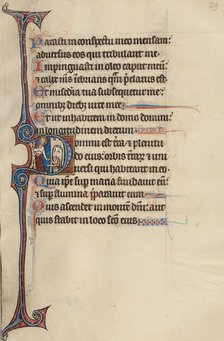 29
Parasti in conspectu meo mensam:
aduersus eos qui tribulant me.
Impinguasti in oleo caput meum:
et calix meus inebrians quam preclarus est
Et misericordia tua subsequetur me:
omnibus diebus vite mee.
Et ut inhabitem in domo domini
in longitudinem dierum.
Domini est terra et plenitu
do eius: orbis terrarum et vniuersi
qui habitant in eo.
Quia ipse super maria fundauit eum:
et super flumina preparauit eum.
Quis ascendet in montem domini: aut
quis stabit in loco sancto eius.